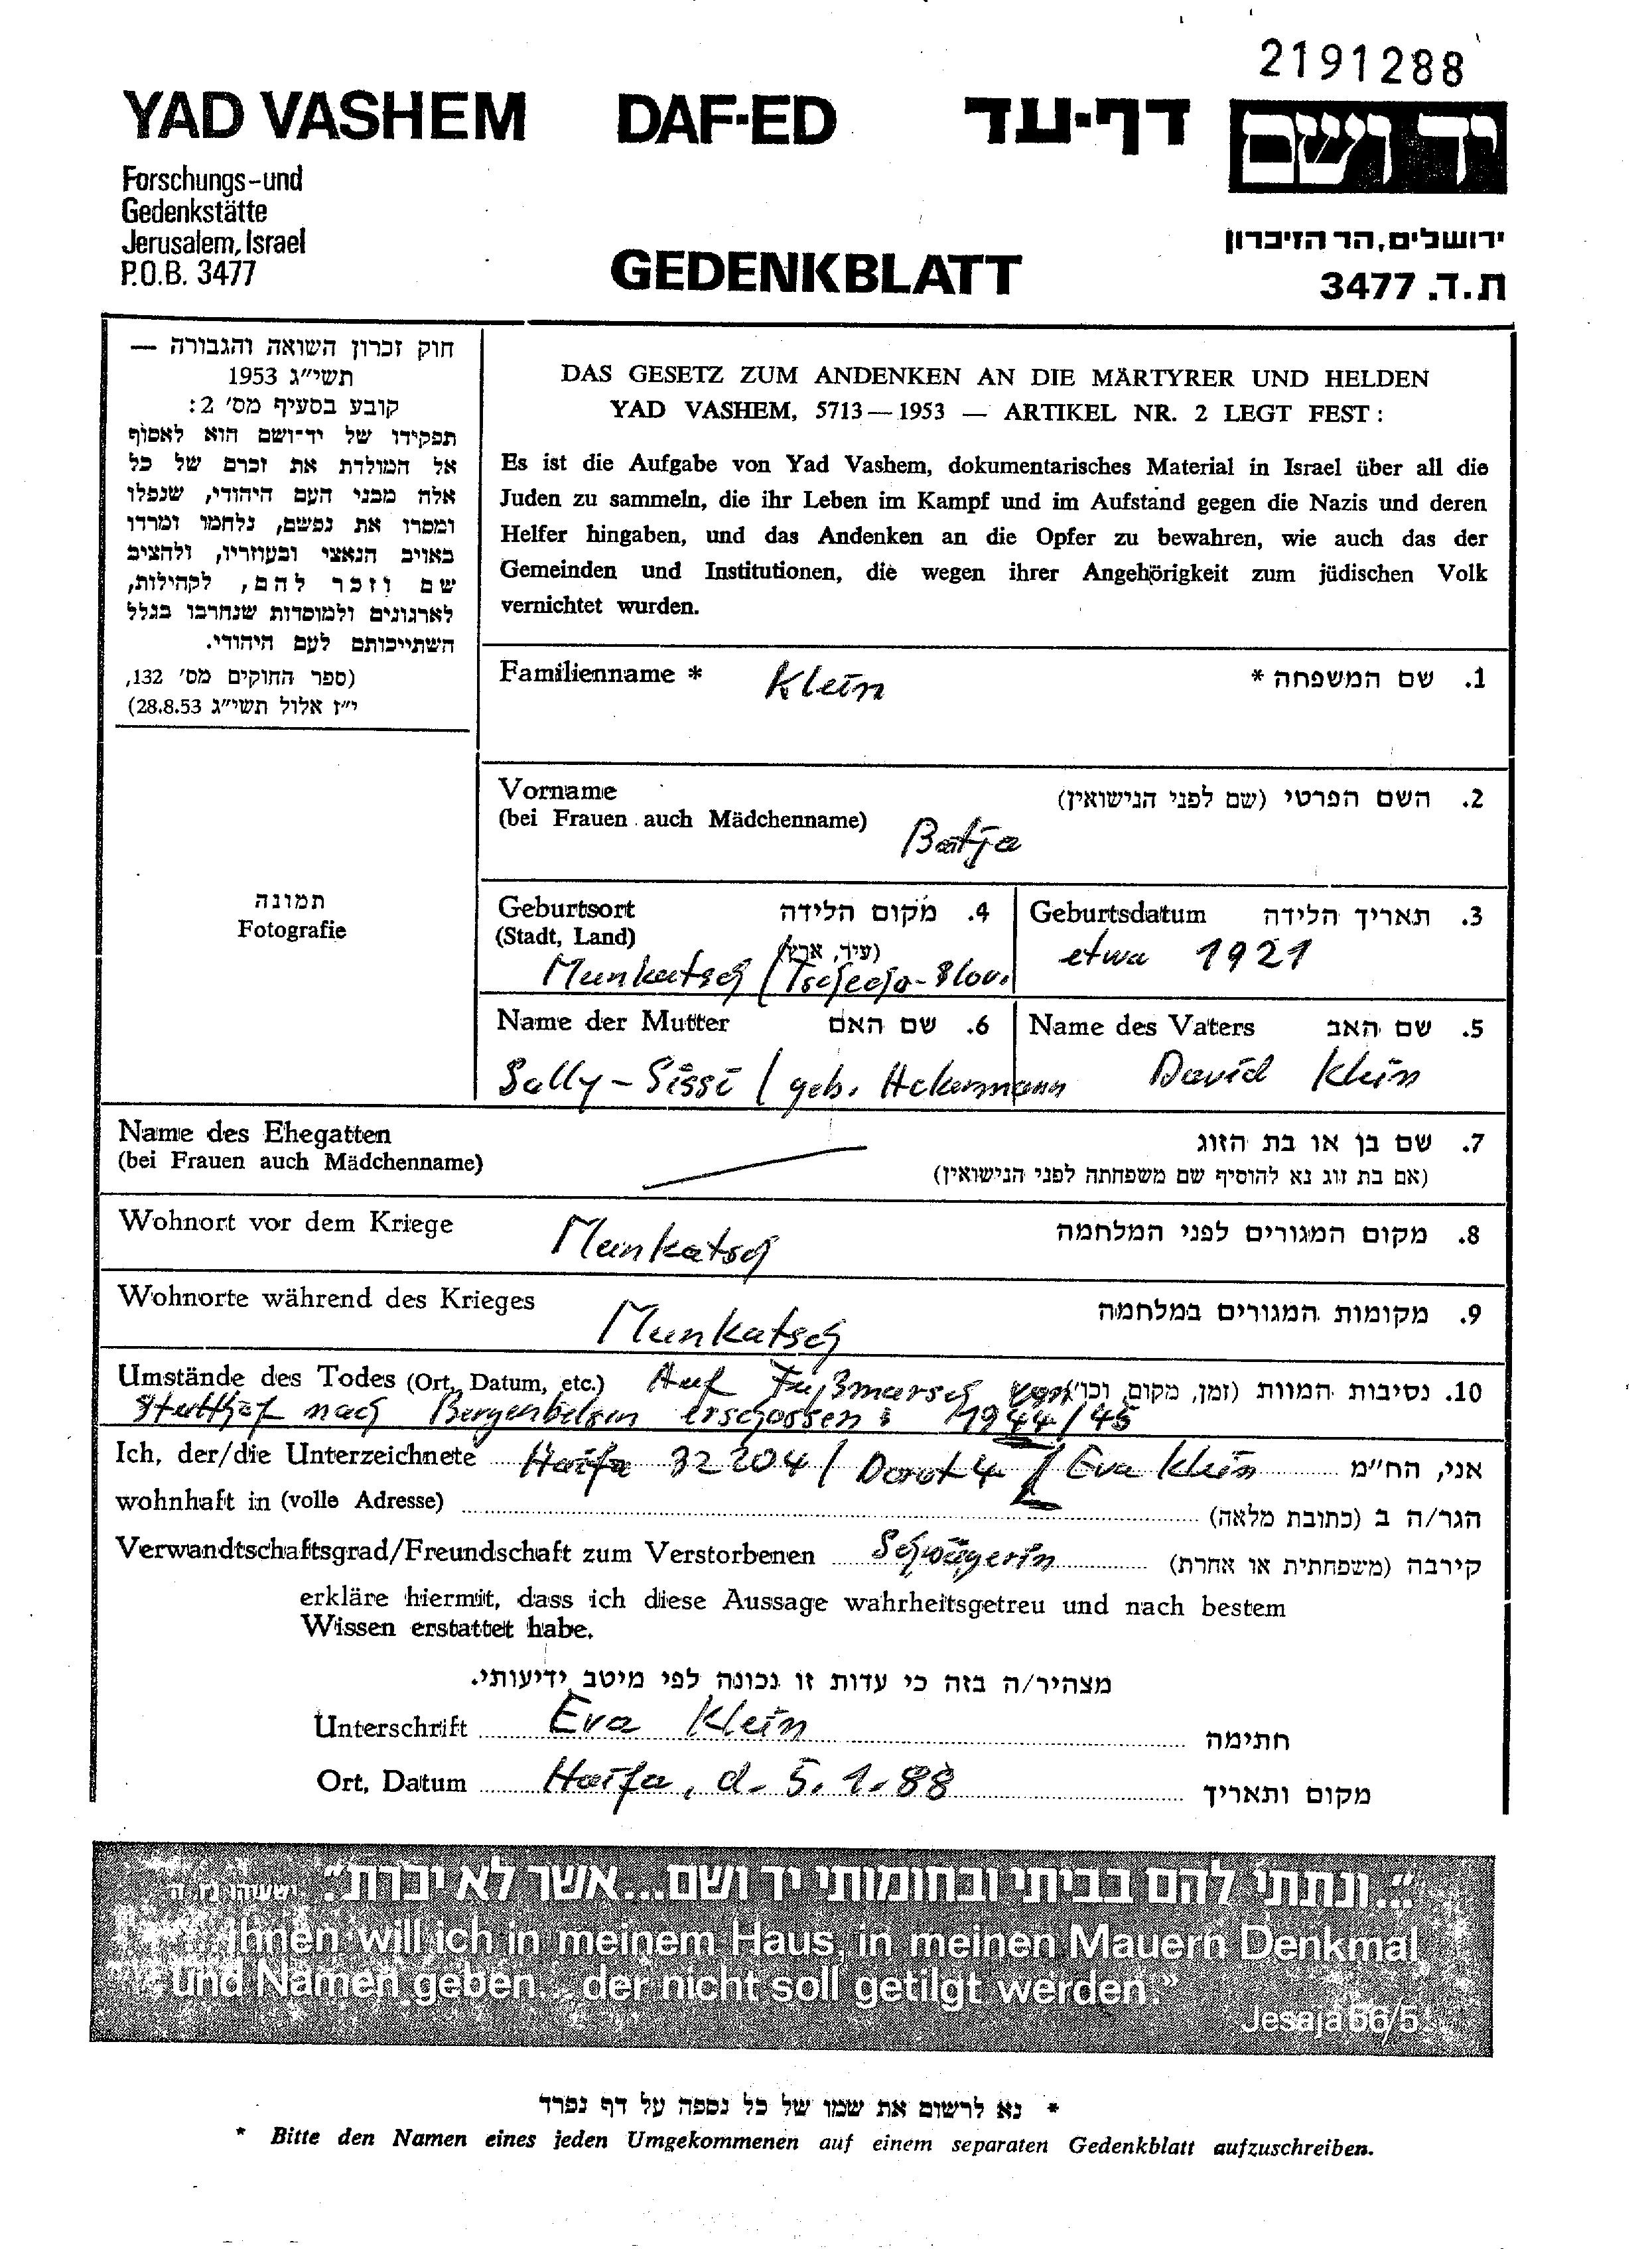 2191288
YAD VASHEM DAF-ED דף-עד יד ושם
Forschungs-und
Gedenkstätte
Jerusalem, Israel
P.O.B. 3477
GEDENKBLATT
ירושלים, הר הזיכרון
ת.ד. 3477
חוק זכרון השואה והגבורה —
תשי״ג 1953
קובע בסעיף מס׳ 2:
תפקידו של יד־ושם הוא לאסוף
אל המולדת את זכרם של כל
אלה מבני העם היהודי, שנפלו
ומסרו את נפשם, נלחמו ומרדו
באויב הנאצי ובעוזריו, ולהציב
שם וזכר להם, לקהילות,
לארגונים ולמוסדות שנחרבו בגלל
השתייכותם לעם היהודי.
(ספר החוקים מס׳ 132,
י״ז אלול תשי״ג 28.8.53)
DAS GESETZ ZUM ANDENKEN AN DIE MÄRTYRER UND HELDEN
YAD VASHEM, 5713—1953 — ARTIKEL NR. 2 LEGT FEST:
Es ist die Aufgabe von Yad Vashem, dokumentarisches Material in Israel über all die
Juden zu sammeln, die ihr Leben im Kampf und im Aufstand gegen die Nazis und deren
Helfer hingaben, und das Andenken an die Opfer zu bewahren, wie auch das der
Gemeinden und Institutionen, die wegen ihrer Angehörigkeit zum jüdischen Volk
vernichtet wurden.
Familienname * Klein 1. שם המשפחה *
Vorname 2. השם הפרטי (שם לפני הנישואין)
(bei Frauen auch Mädchenname) Batja
תמונה
Fotografie
Geburtsort 4. מקום הלידה
(Stadt, Land) (עיר, ארץ)
Munkatsch (Tschecho-Slov.
Geburtsdatum 3. תאריך הלידה
etwa 1921
Name der Mutter 6. שם האם
Sally-Sissi / geb. Ackermann
Name des Vaters 5. שם האב
David Klein
Name des Ehegatten 7. שם בן או בת הזוג
(bei Frauen auch Mädchenname) (אם בת זוג נא להוסיף שם משפחתה לפני הנישואין)
Wohnort vor dem Kriege Munkatsch 8. מקום המגורים לפני המלחמה
Wohnorte während des Krieges Munkatsch 9. מקומות המגורים במלחמה
Umstände des Todes (Ort, Datum, etc.) Auf Fußmarsch von 10. נסיבות המוות (זמן, מקום, וכו׳)
Stutthof nach Bergenbelsen erschossen: 1944/45
Ich, der/die Unterzeichnete Haifa 32204 / Dorot 4 / Eva Klein אני, הח״מ
wohnhaft in (volle Adresse) הגר/ה ב (כתובת מלאה)
Verwandtschaftsgrad/Freundschaft zum Verstorbenen Schwägerin קירבה (משפחתית או אחרת)
erkläre hiermit, dass ich diese Aussage wahrheitsgetreu und nach bestem
Wissen erstattet habe.
מצהיר/ה בזה כי עדות זו נכונה לפי מיטב ידיעותי.
Unterschrift Eva Klein חתימה
Ort, Datum Haifa, d. 5.1.88 מקום ותאריך
״...ונתתי להם בביתי ובחומותי יד ושם...אשר לא יכרת״. ישעיהו נו, ה
"...Ihnen will ich in meinem Haus, in meinen Mauern Denkmal
und Namen geben... der nicht soll getilgt werden."
Jesaja 56/5
* נא לרשום את שמו של כל נספה על דף נפרד
* Bitte den Namen eines jeden Umgekommenen auf einem separaten Gedenkblatt aufzuschreiben.